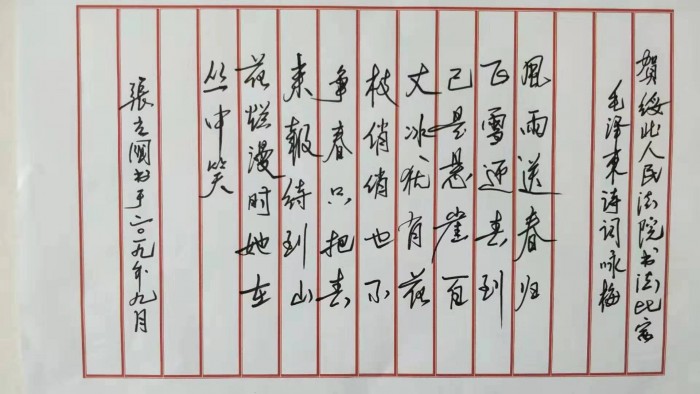 贺绥化人民法院书法比赛
毛泽东诗词咏梅
風雨送春归
飞雪迎春到
已是悬崖百
丈冰犹有花
枝俏俏也不
争春只把春
来報待到山
花烂漫时她在
丛中笑
張立国书于二〇一九年九月